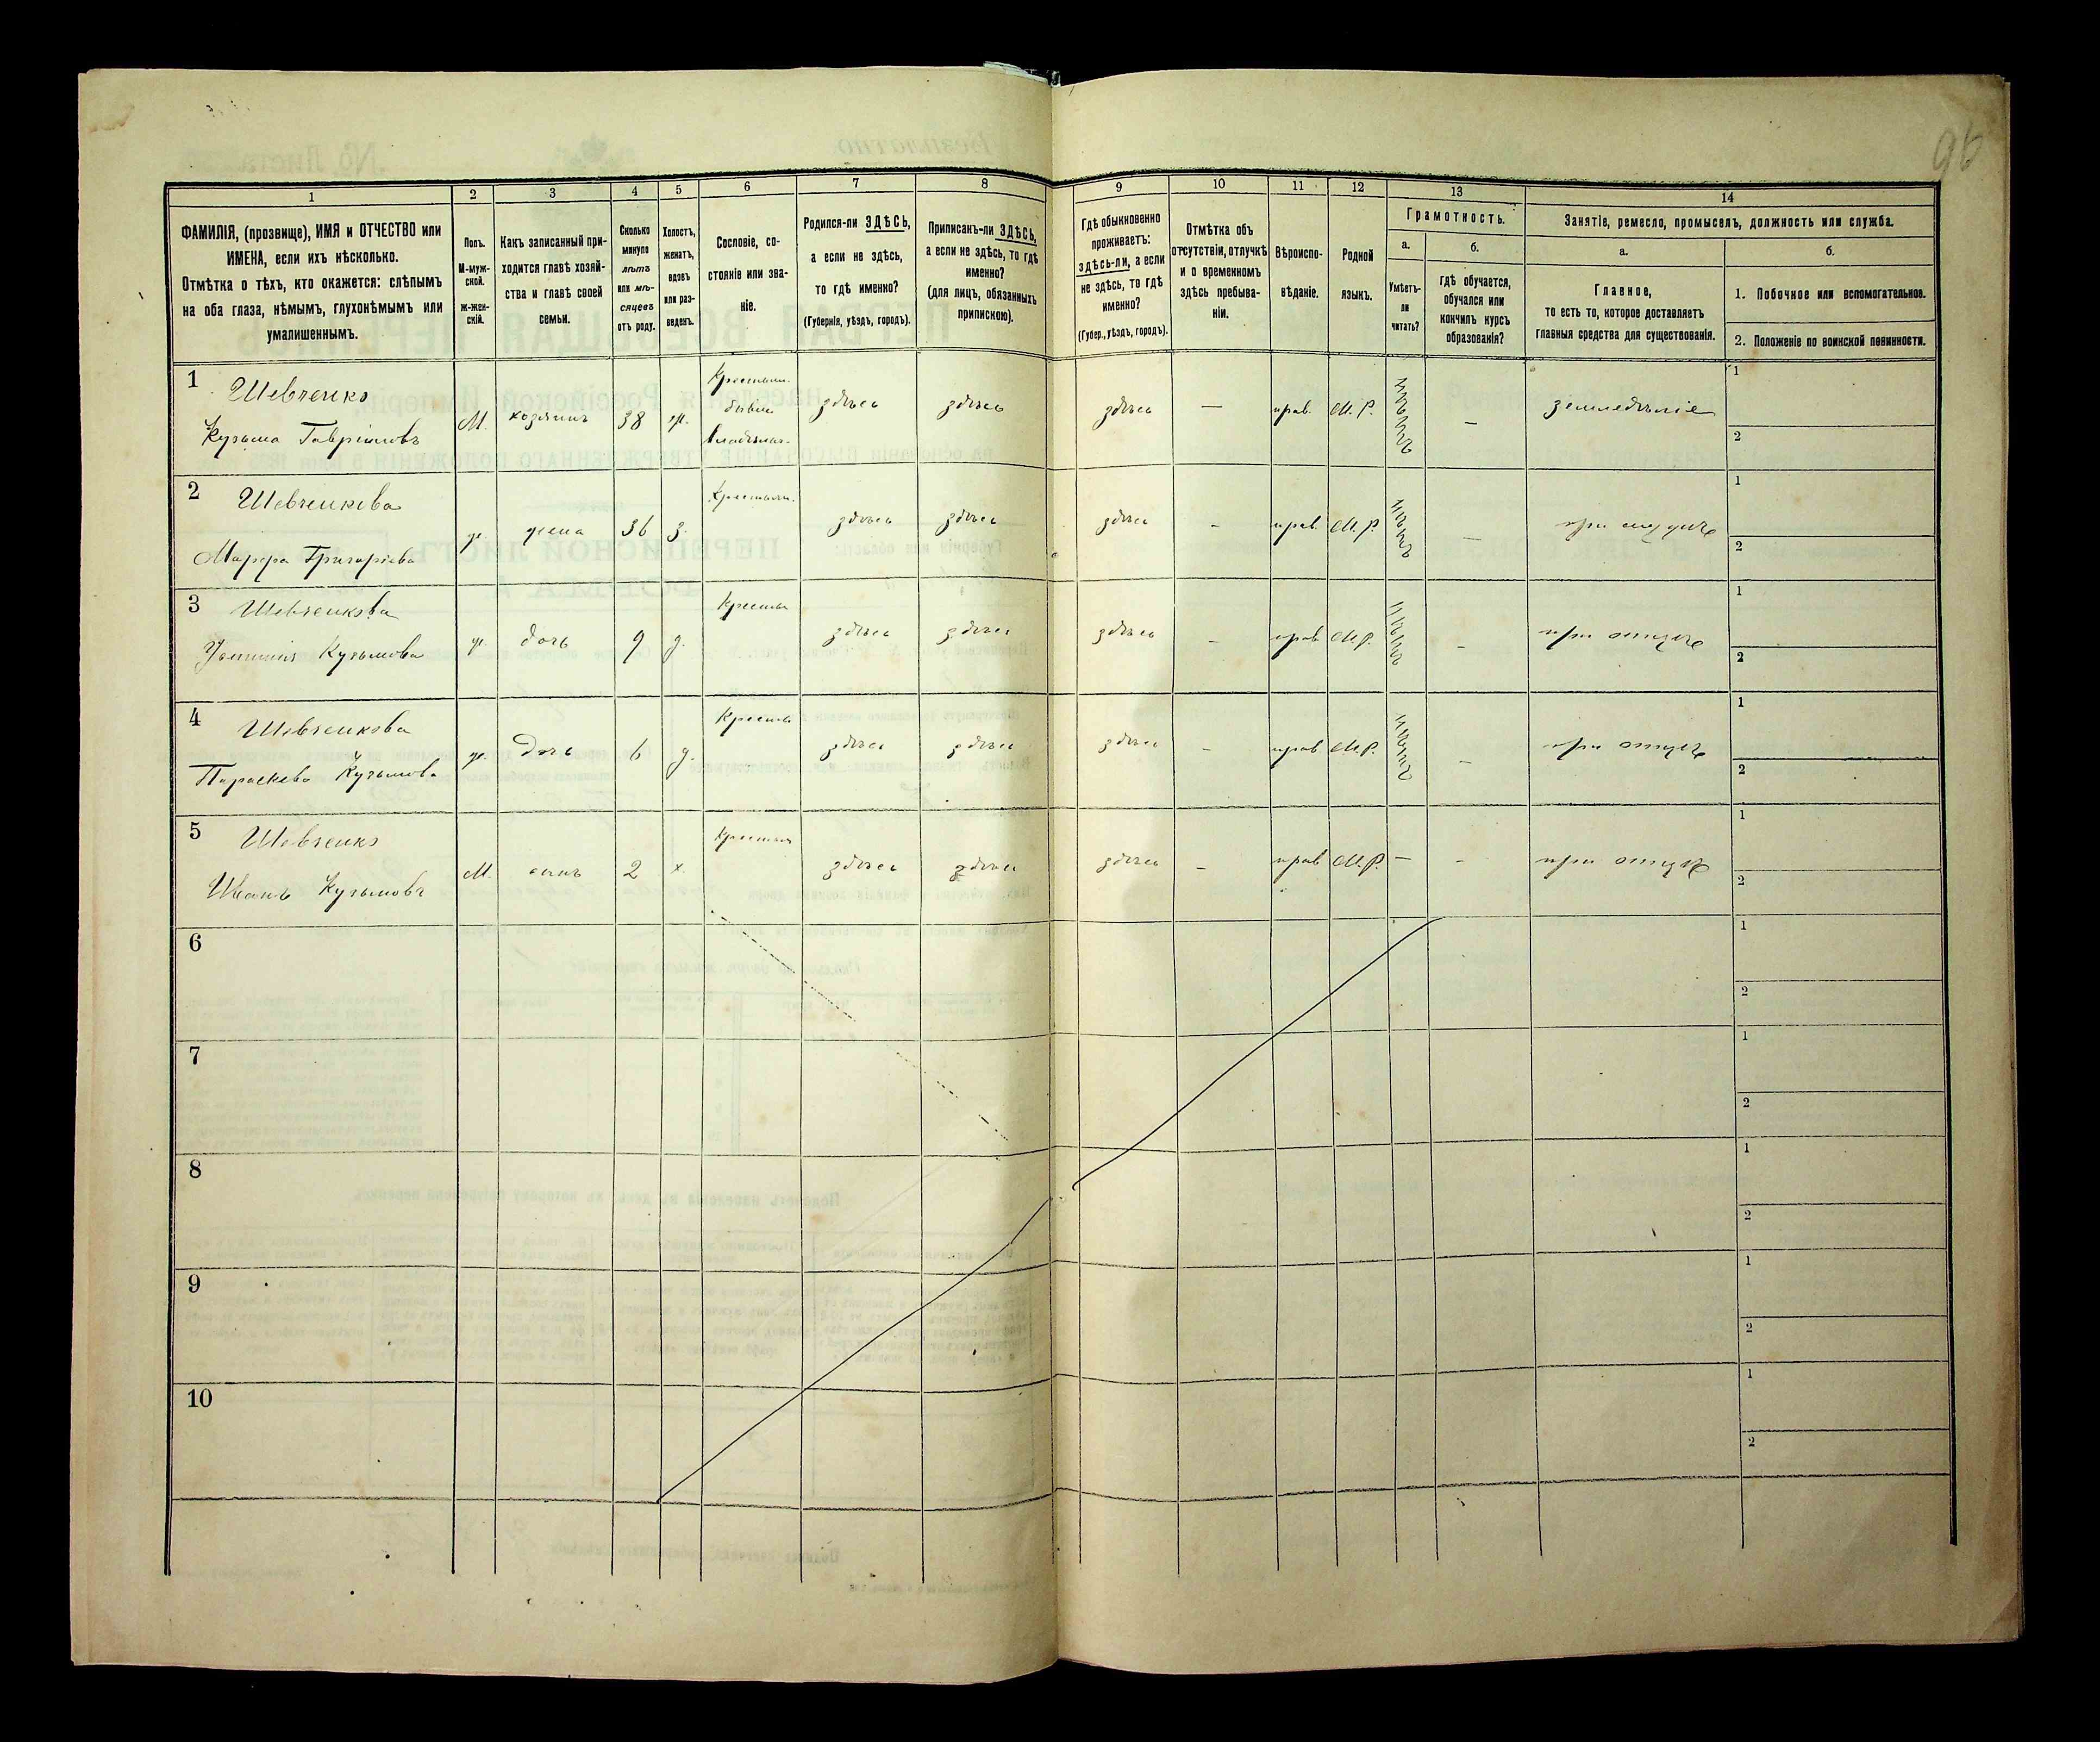 96
1 2 3 4 5 6 7 8 9 10 11 12 13 14
ФАМИЛІЯ, (прозвище), ИМЯ и ОТЧЕСТВО или
ИМЕНА, если ихъ нѣсколько.
Отмѣтка о тѣхъ, кто окажется: слѣпымъ
на оба глаза, нѣмымъ, глухонѣмымъ или
умалишеннымъ.
Полъ.
М-муж-
ской.
ж-жен-
скій.
Какъ записанный при-
ходится главѣ хозяй-
ства и главѣ своей
семьи.
Сколько
минуло
лѣтъ
или мѣ-
сяцевъ
отъ роду.
Холостъ,
женатъ,
вдовъ
или раз-
веденъ.
Сословіе, со-
стояніе или зва-
ніе.
Родился-ли ЗДѢСЬ,
а если не здѣсь,
то гдѣ именно?
(Губернія, уѣздъ, городъ).
Приписанъ-ли ЗДѢСЬ,
а если не здѣсь, то гдѣ
именно?
(для лицъ, обязанныхъ
припискою).
Гдѣ обыкновенно
проживаетъ:
здѣсь-ли, а если
не здѣсь, то гдѣ
именно?
(Губер., уѣздъ, городъ).
Отмѣтка объ
отсутствіи, отлучкѣ
и о временномъ
здѣсь пребыва-
ніи.
Вѣроиспо-
вѣданіе.
Родной
языкъ.
Грамотность.
а.
Умѣетъ-
ли
читать?
б.
гдѣ обучается,
обучался или
кончилъ курсъ
образованія?
Занятіе, ремесло, промыселъ, должность или служба.
а.
Главное,
то есть то, которое доставляетъ
главныя средства для существованія.
б.
1. Побочное или вспомогательное.
2. Положеніе по воинской повинности.
1 Шевченко
Кузьма Гавріиловъ
М. хозяинъ 38 ж.
Крестьян.
бывш
владѣльч.
здѣсь здѣсь здѣсь — прав. М.Р. нѣтъ — земледѣліе
1
2
2 Шевченкова
Марфа Григоріева
ж. жена 36 з. Крестьян. здѣсь здѣсь здѣсь - прав. М.Р. нѣтъ — при мужѣ
1
2
3 Шевченкова
Кузьмова
ж. дочь 9 д. Крестьян здѣсь здѣсь здѣсь - прав М.Р. нѣтъ - при отцѣ
1
2
4 Шевченкова
Параскева Кузьмова
ж. дочь 6 д. Крестьян здѣсь здѣсь здѣсь - прав М.Р. нѣтъ - при отцѣ
1
2
5 Шевченко
Иванъ Кузьмовъ
М. сынъ 2 х. Крестьян здѣсь здѣсь здѣсь - прав М.Р. — - при отцѣ
1
2
6
1
2
7
1
2
8
1
2
9
1
2
10
1
2